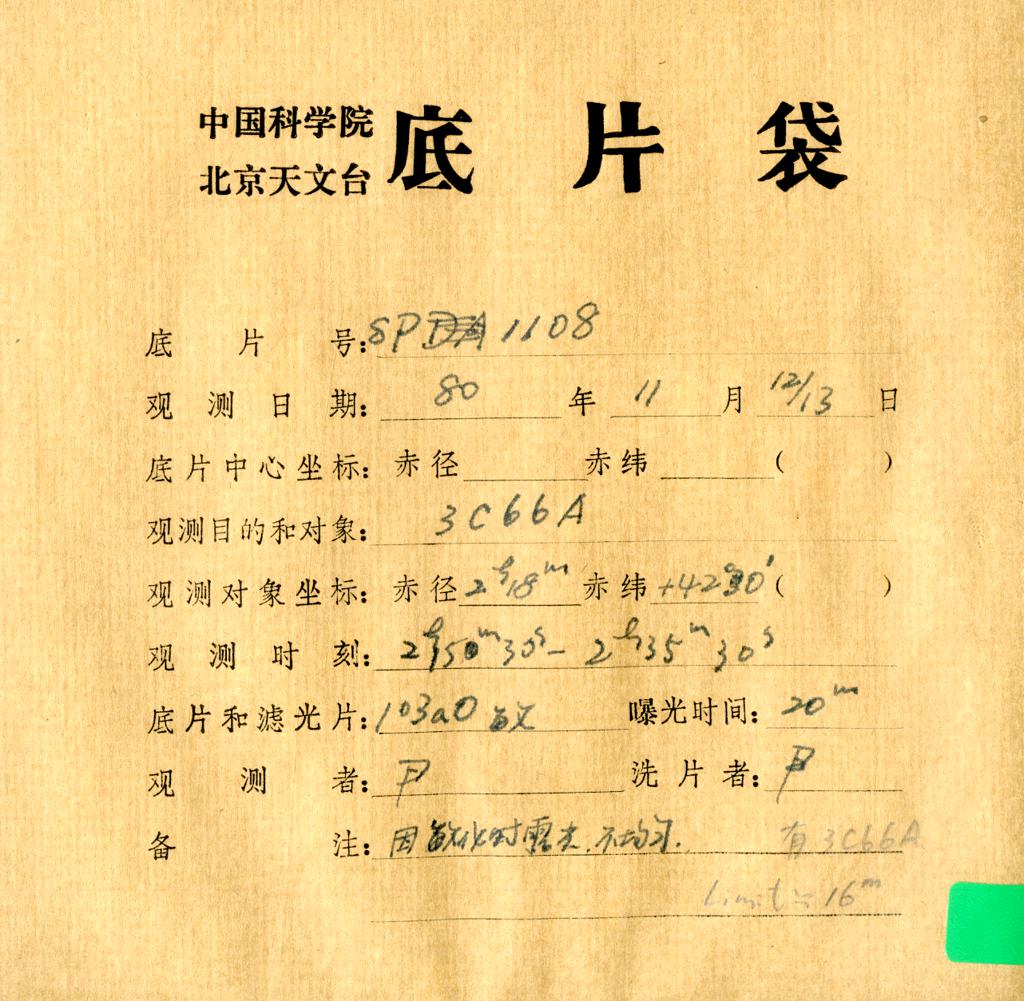 中国科学院
北京天文台
底片袋
底片号: SP 1108
观测日期: 80 年 11 月 12/13 日
底片中心坐标: 赤径 赤纬 ( )
观测目的和对象: 3C66A
观测对象坐标: 赤径 2ʰ18ᵐ 赤纬 +42°30′ ( )
观测时刻: 2ʰ50ᵐ30ˢ - 2ʰ35ᵐ30ˢ
底片和滤光片: 103aO 敏 曝光时间: 20ᵐ
观测者: 尹 洗片者: 尹
备注: 因敏化时露光, 不均匀. 有 3C66A
Limit ≈ 16ᵐ